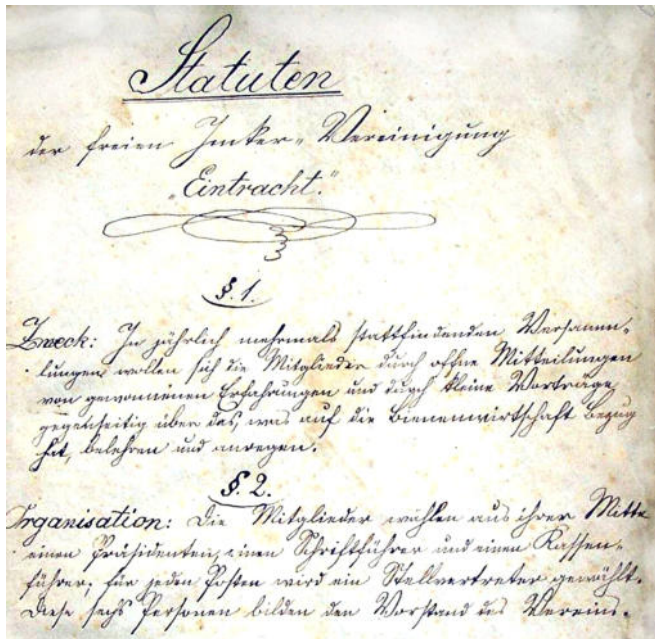 Statuten
der freien Imker-Vereinigung
"Eintracht."
§. 1.
Zweck: In jährlich mehrmals stattfindenden Versamm-
lungen wollen sich die Mitglieder durch offne Mitteilungen
von gewonnenen Erfahrungen und durch kleine Vorträge
gegenseitig über das, was auf die Bienenwirtschaft Bezug
hat, belehren und anregen.
§. 2.
Organisation: Die Mitglieder wählen aus ihrer Mitte
einen Präsidenten, einen Schriftführer und einen Kassen-
führer; für jeden Posten wird ein Stellvertreter gewählt.
Diese sechs Personen bilden den Vorstand des Vereins.